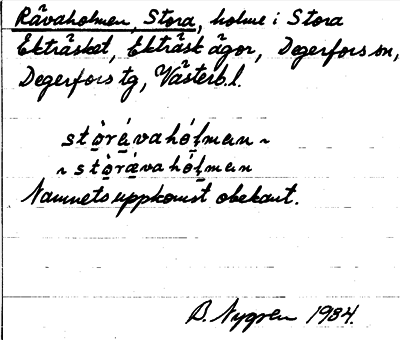 Råvaholmen, Stora, holme i Stora
Ekträsket, Ekträsk ägor, Degerfors sn,
Degerfors tg, Västerb. l.
stòrávahólman ~
~ stòrævahólman
Namnets uppkomst obekant.
B. Nygren 1984.